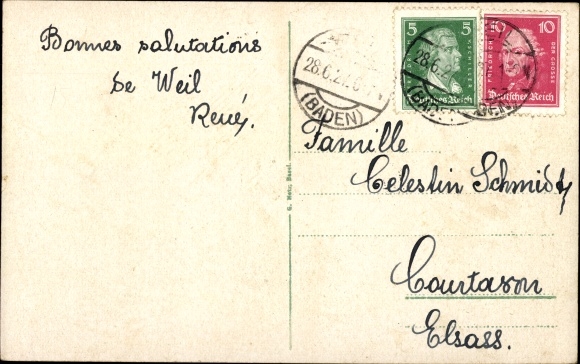 Bonnes salutations
de Weil
René.
28.6.2
(BADEN)
5 5
F.v.SCHILLER
Deutsches Reich
10 10
FRIEDRICH DER GROSSE
Deutsches Reich
28.6.2
(BADEN)
Famille
Celestin Schmidt
Courtavon
Elsass.